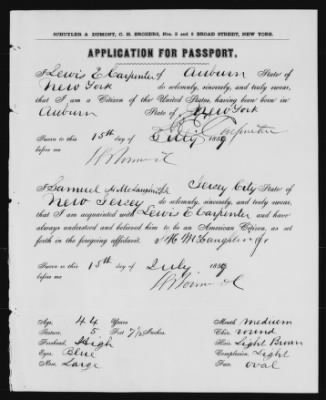 SCHUYLER & DUMONT, U. S. BROKERS, Nos. 2 and 6 BROAD STREET, NEW YORK.
APPLICATION FOR PASSPORT.
I Lewis E Carpenter of Auburn State of
New York do solemnly, sincerely, and truly swear,
that I am a Citizen of the United States, having been born in
Auburn State of New York
Carpenter
Sworn to this 15th day of July
before me
I Samuel H McLaughlin of Jersey City State of
New Jersey do solemnly, sincerely, and truly swear,
that I am acquainted with Lewis E Carpenter and have
always understood and believed him to be an American Citizen, as set
forth in the foregoing affidavit. McLaughlin
Sworn to this 15th day of July
before me
Age, 44 Years
Stature, 5 Feet 7½ Inches.
Forehead, High
Eyes, Blue
Nose, Large
Mouth, medium
Chin, round
Hair, Light Brown
Complexion, Light
Face, oval